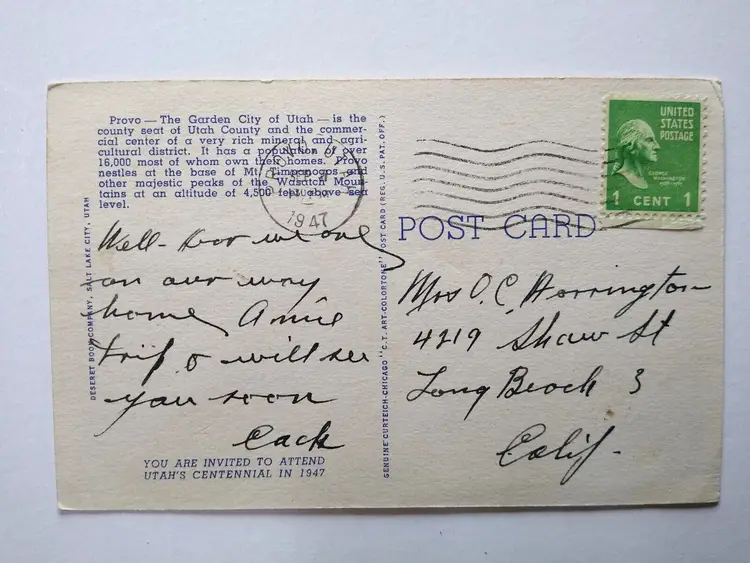 Provo — The Garden City of Utah — is the
county seat of Utah County and the commer-
cial center of a very rich mineral and agri-
cultural district. It has a population of over
16,000 most of whom own their homes. Provo
nestles at the base of Mt. Timpanogos and
other majestic peaks of the Wasatch Moun-
tains at an altitude of 4,500 feet above sea
level.
PROVO, UTAH
SEP 4
1947
UNITED
STATES
POSTAGE
GEORGE
WASHINGTON
1 CENT 1
POST CARD
Well - here we are
on our way
home,
trip & will see
you soon
DESERET BOOK COMPANY, SALT LAKE CITY, UTAH
YOU ARE INVITED TO ATTEND
UTAH'S CENTENNIAL IN 1947
GENUINE CURTEICH-CHICAGO "C.T. ART-COLORTONE" POST CARD (REG. U.S. PAT. OFF.)
Mrs O. C. Harrington
4219 Shaw St
Long Beach 3
Calif.